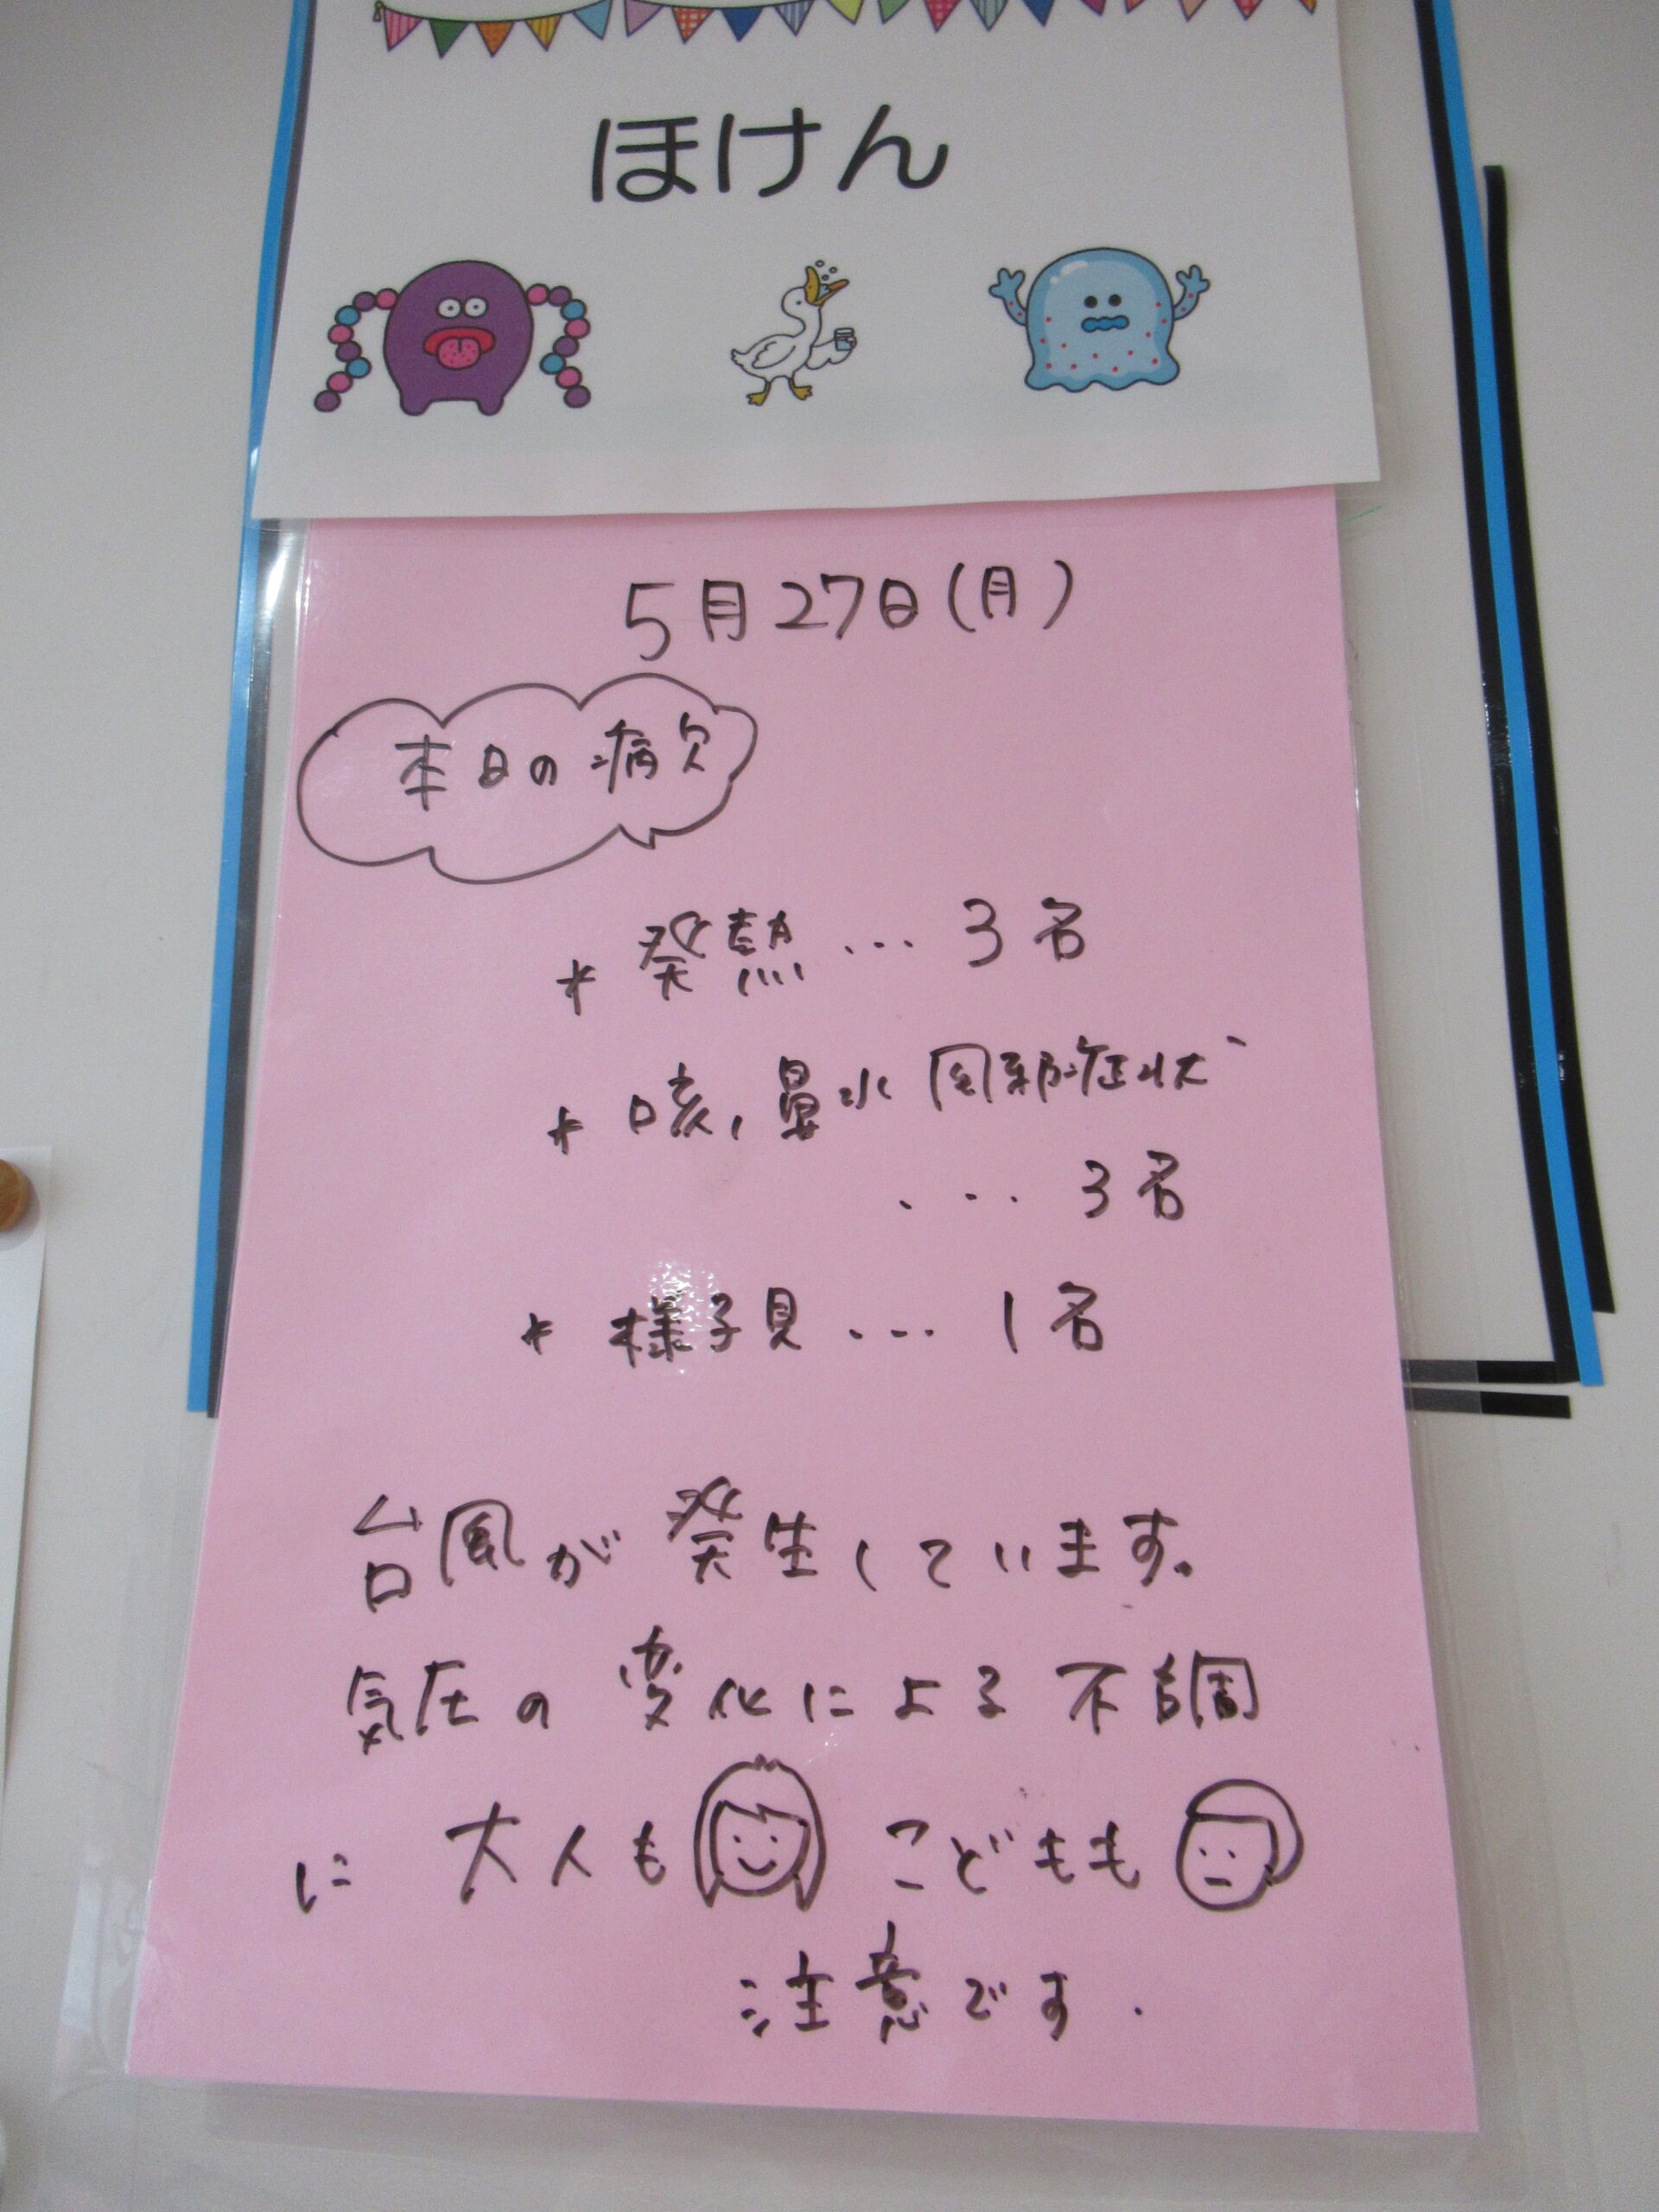 ほけん
5月27日(月)
本日の病欠
* 発熱 … 3名
* 咳, 鼻水 風邪症状
… 3名
* 様子見 … 1名
台風が発生しています。
気圧の変化による不調
に 大人も こどもも
注意です.